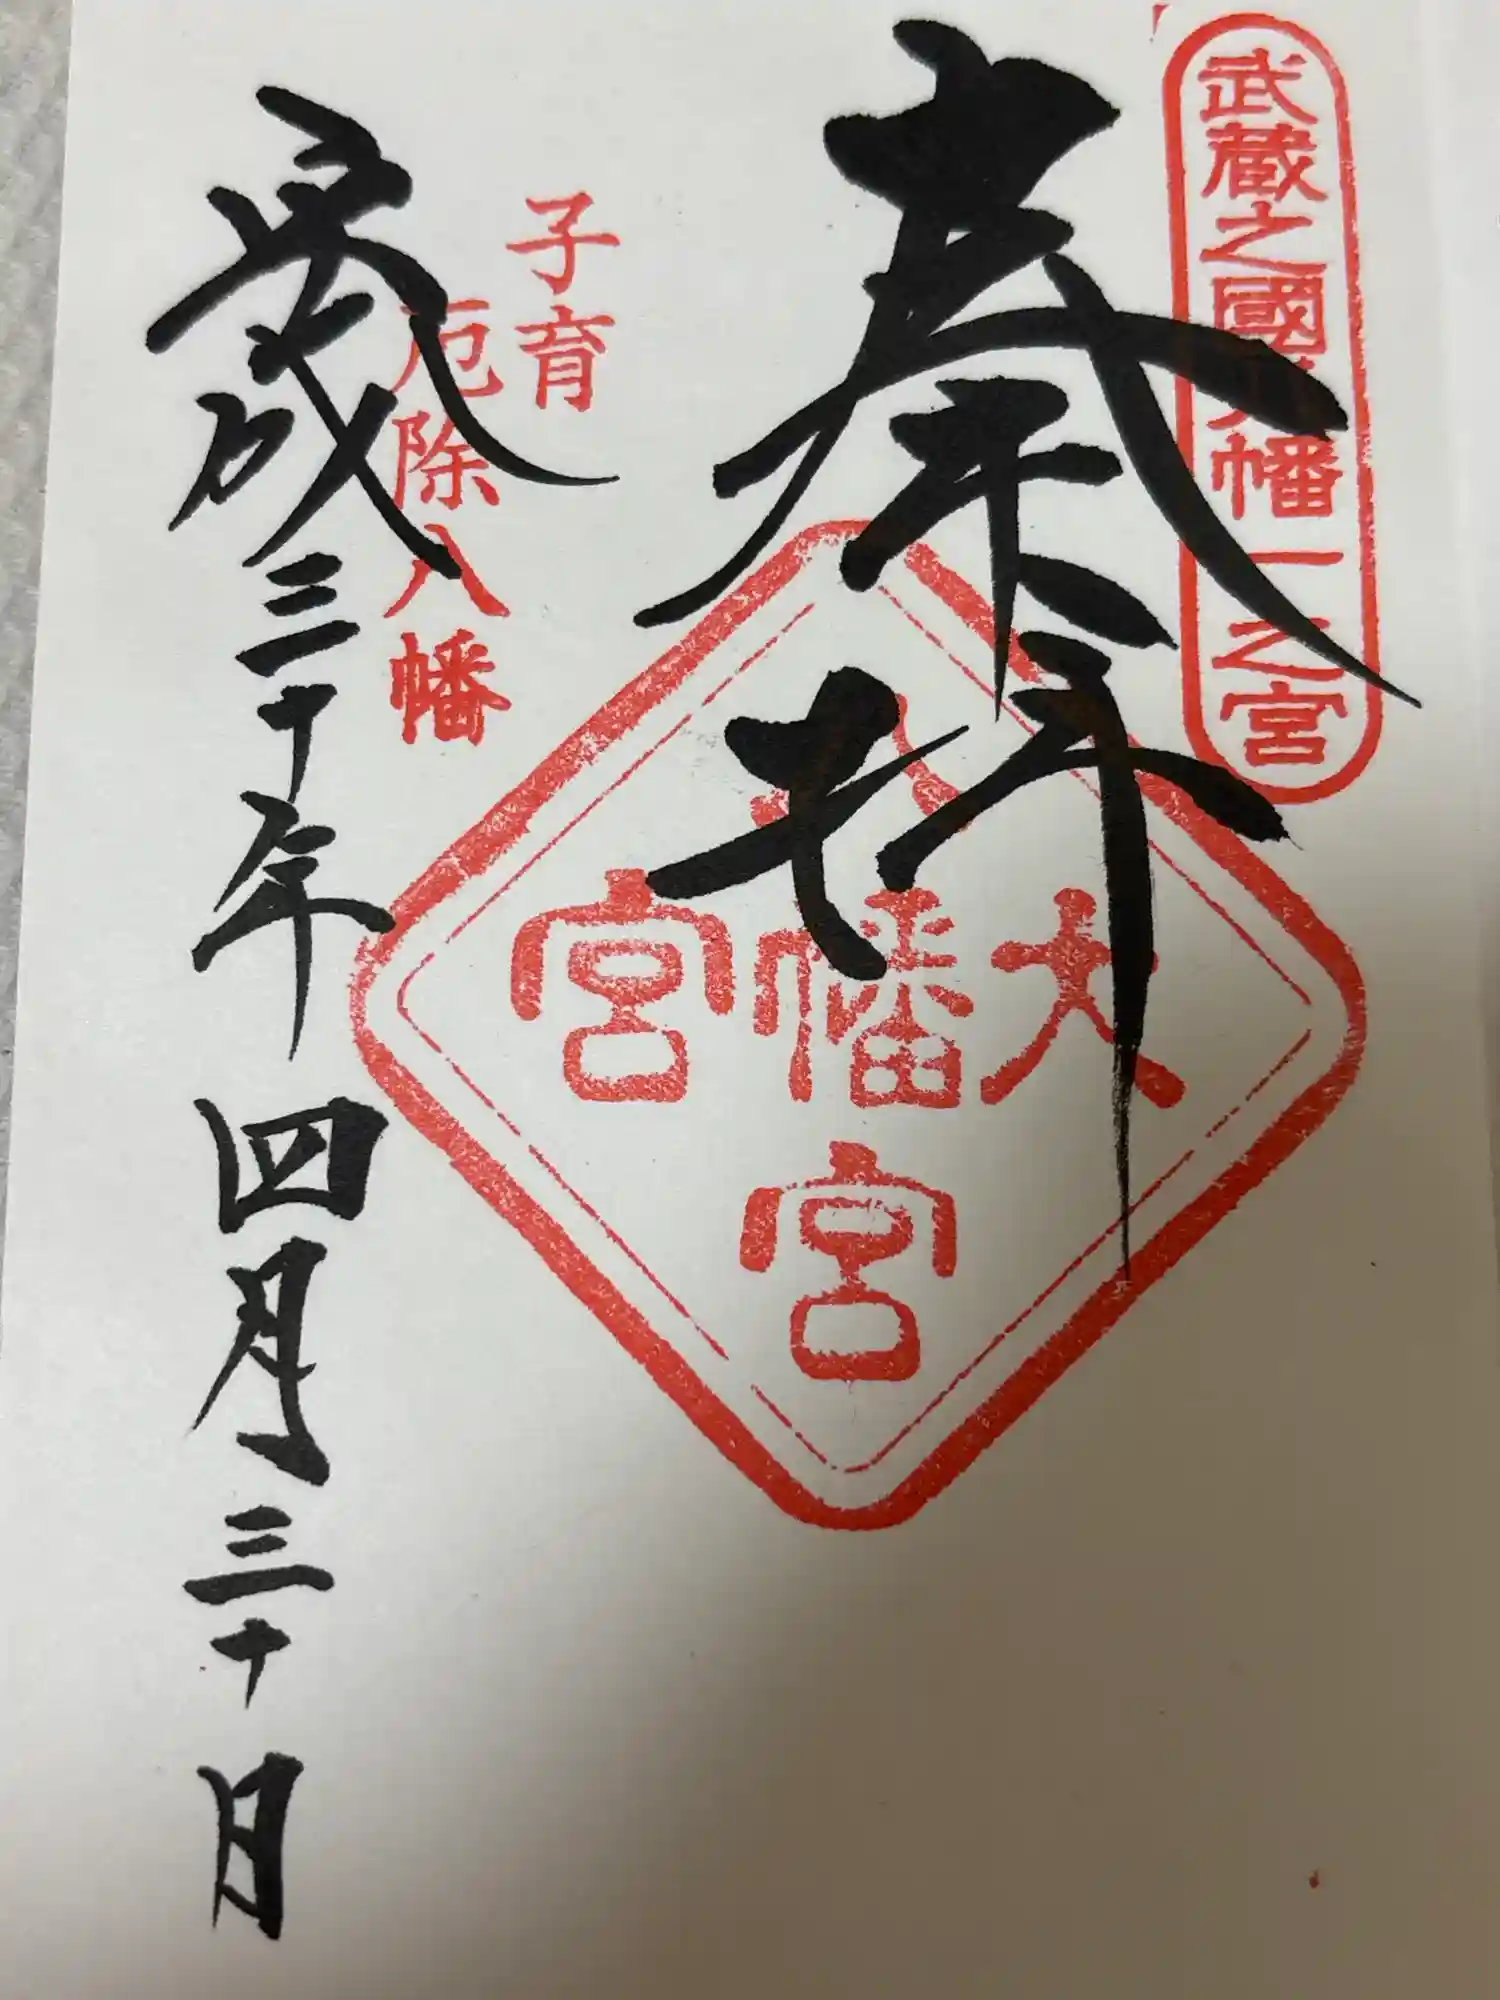 武蔵之國八幡一之宮
奉拝
大八幡宮
宮
子育
厄除八幡
平成三十年四月三十日